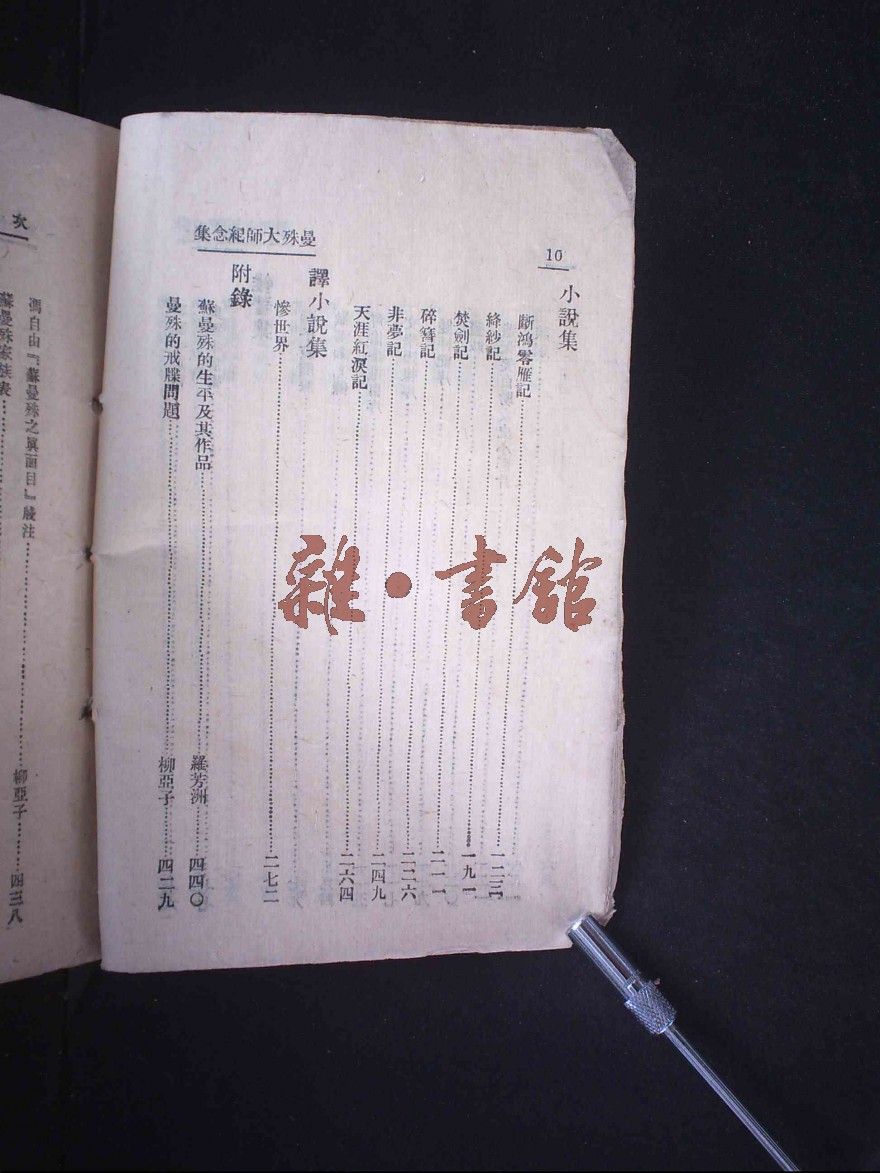 10
曼殊大師紀念集
小說集
斷鴻零雁記……一二三
絳紗記……一九一
焚劍記……二一一
碎簪記……二二六
非夢記……二四九
天涯紅淚記……二六四
譯小說集
慘世界……二七二
附錄
蘇曼殊的生平及其作品……羅芳洲……四四〇
曼殊的戒牒問題……柳亞子……四二九
次
馮自由『蘇曼殊之眞面目』箋注……柳亞子……四三八
蘇曼殊家族表……
雜·書舘